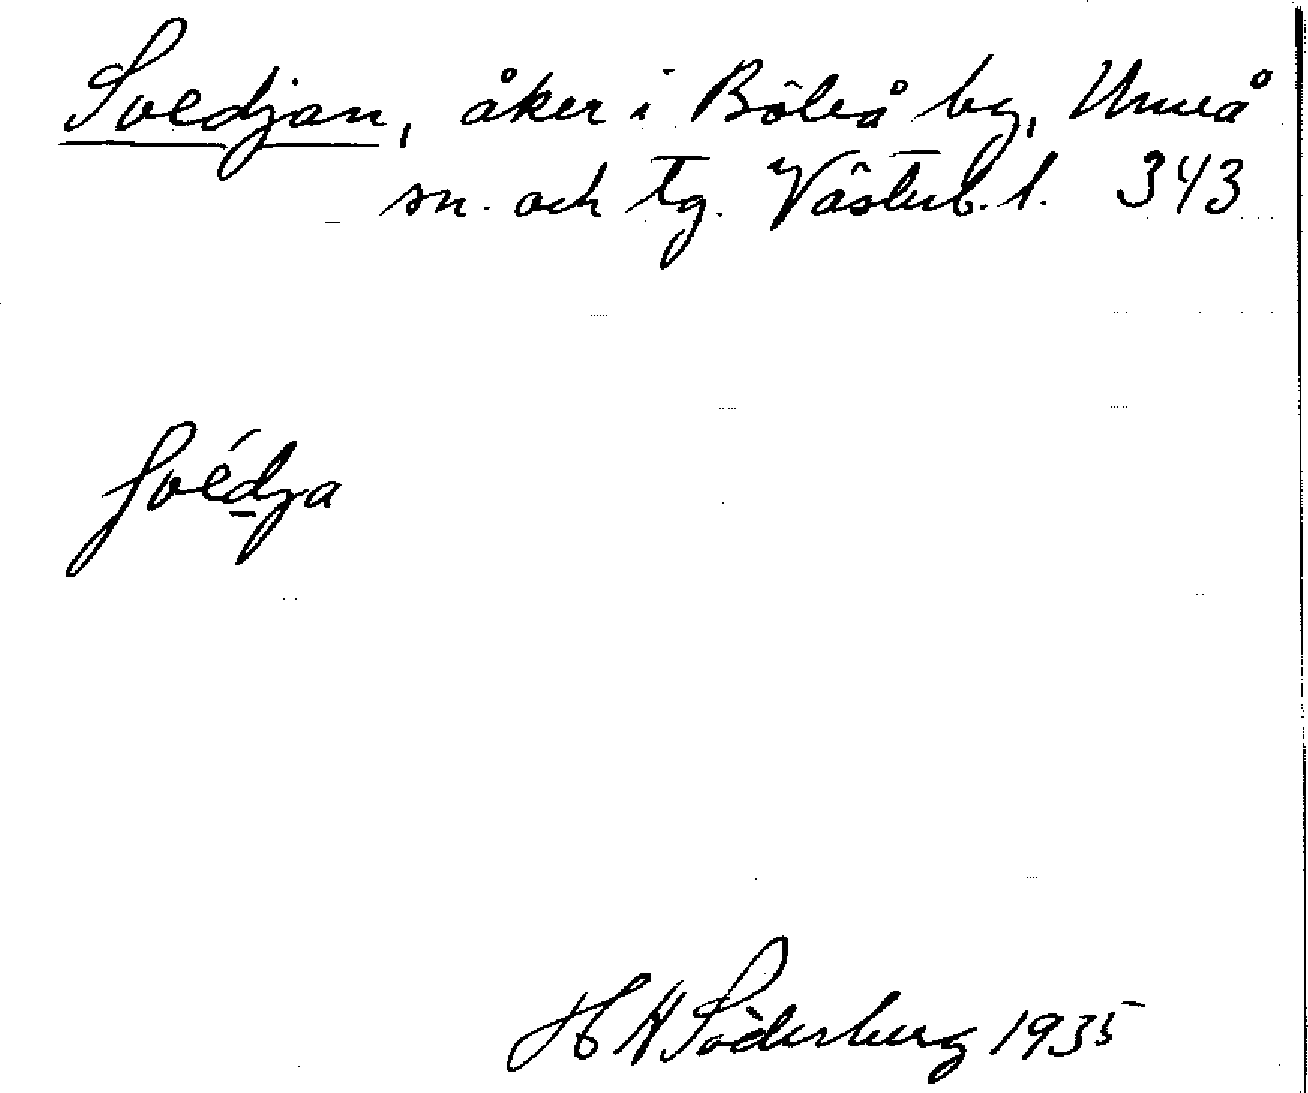 Svedjan, åker i Böleå by, Umeå
sn. och tg. Västerb. l. 343
svédja
H H Söderberg 1935